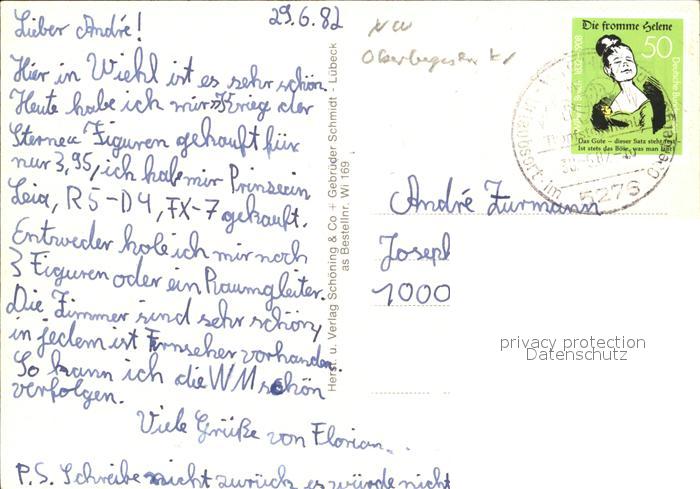 29.6.82
Lieber André!
Hier in Wiehl ist es sehr schön
Heute habe ich mir Krieg der
Sterne Figuren gekauft für
nur 3,95, ich hab mir Prinsein
Leia, R5-D4, FX-7 gekauft.
Entweder hole ich mir noch
3 Figuren oder ein Raumgleiter.
Die Zimmer sind sehr schön,
in jedem ist Fernseher vorhanden.
So kann ich die WM schön
verfolgen.
Viele Grüße von Florian..
P.S. Schreibe nicht zurück es würde nicht
Herst. u. Verlag Schöning & Co + Gebrüder Schmidt - Lübeck
as Bestellnr. Wi 169
NW
Die fromme Helene
50
Busch 1832-1908
Deutsche Bundes
Das Gute – dieser Satz steht fest –
Ist stets das Böse, was man
5276
André Zurmann
Joseph
1000
privacy protection
Datenschutz